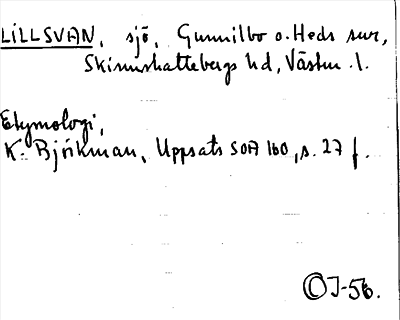 LILLSVAN, sjö, Gunnilbo o. Heds snr,
Skinnskattebergs hd, Västm. l.
Etymologi,
K. Björkman, Uppsats SOA 160, s. 27 f.
© J-56.